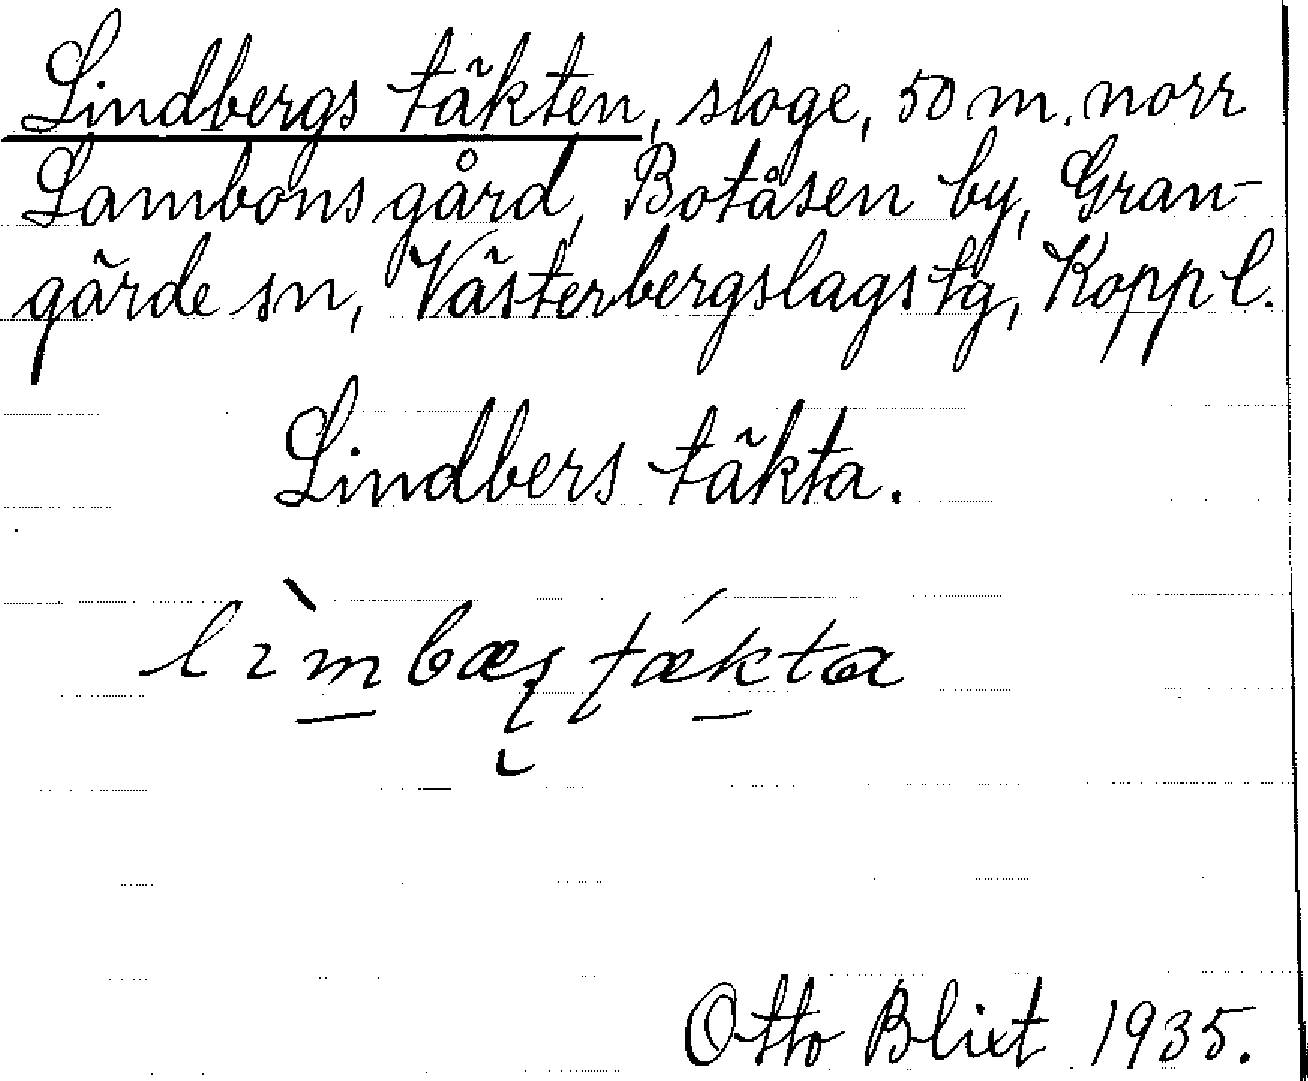 Lindbergs täkten, sloge, 50 m. norr
Lambons gård, Botåsen by, Gran-
gärde sn, Västerbergslags tg, Kopp l.
Lindbers täkta.
lìm̲bæʂ tǽk̲ta
Otto Blixt 1935.